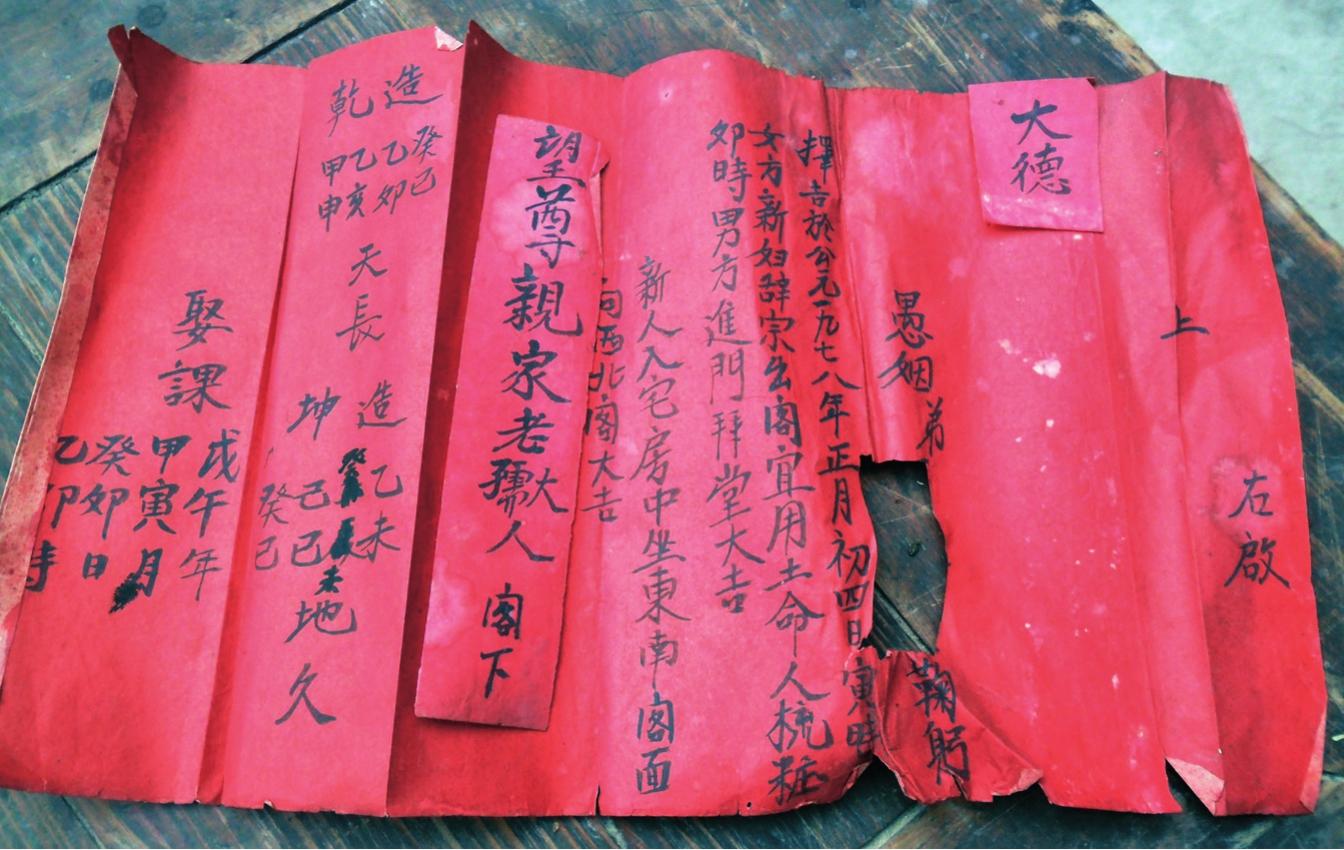 右啟
上
大德
愚姻弟
鞠躬
擇吉於公元一九七八年正月初四日寅時
女方新妇辞宗出閣宜用土命人梳粧
卯時男方進門拜堂大吉
新人入宅房中坐東南閣面
向西北閣大吉
望尊親家老大孺人 閣下
乾造
癸巳
乙卯
乙亥
甲申
天長
坤造
乙未
己巳
癸巳
地久
娶課
戊午年
甲寅月
癸卯日
乙卯時